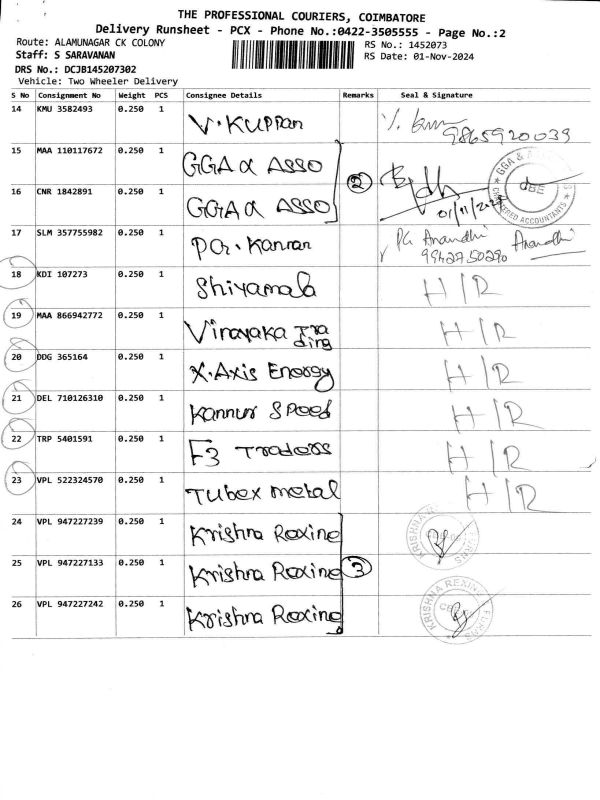 THE PROFESSIONAL COURIERS, COIMBATORE
Delivery Runsheet - PCX - Phone No.:0422-3505555 - Page No.:2
Route: ALAMUNAGAR CK COLONY RS No.: 1452073
Staff: S SARAVANAN RS Date: 01-Nov-2024
DRS No.: DCJB145207302
Vehicle: Two Wheeler Delivery
S No Consignment No Weight PCS Consignee Details Remarks Seal & Signature
14 KMU 3582493 0.250 1 V. Kuppan 9865920039
15 MAA 110117672 0.250 1 GGA & ASSO
16 CNR 1842891 0.250 1 GGA & ASSO 2 01/11/2024
GGA & CHARTERED ACCOUNTANTS CBE
17 SLM 357755982 0.250 1 PG. Kannan PG Anandhi Anandhi
9942750290
18 KDI 107273 0.250 1 Shiyamala H/R
19 MAA 866942772 0.250 1 Vinayaka Trading H/R
20 DDG 365164 0.250 1 X.Axis Energy H/R
21 DEL 710126310 0.250 1 Kannur Speed H/R
22 TRP 5401591 0.250 1 F3 Traders H/R
23 VPL 522324570 0.250 1 Tubex metal H/R
24 VPL 947227239 0.250 1 Krishna Rexine
25 VPL 947227133 0.250 1 Krishna Rexine 3
26 VPL 947227242 0.250 1 Krishna Rexine KRISHNA REXINE